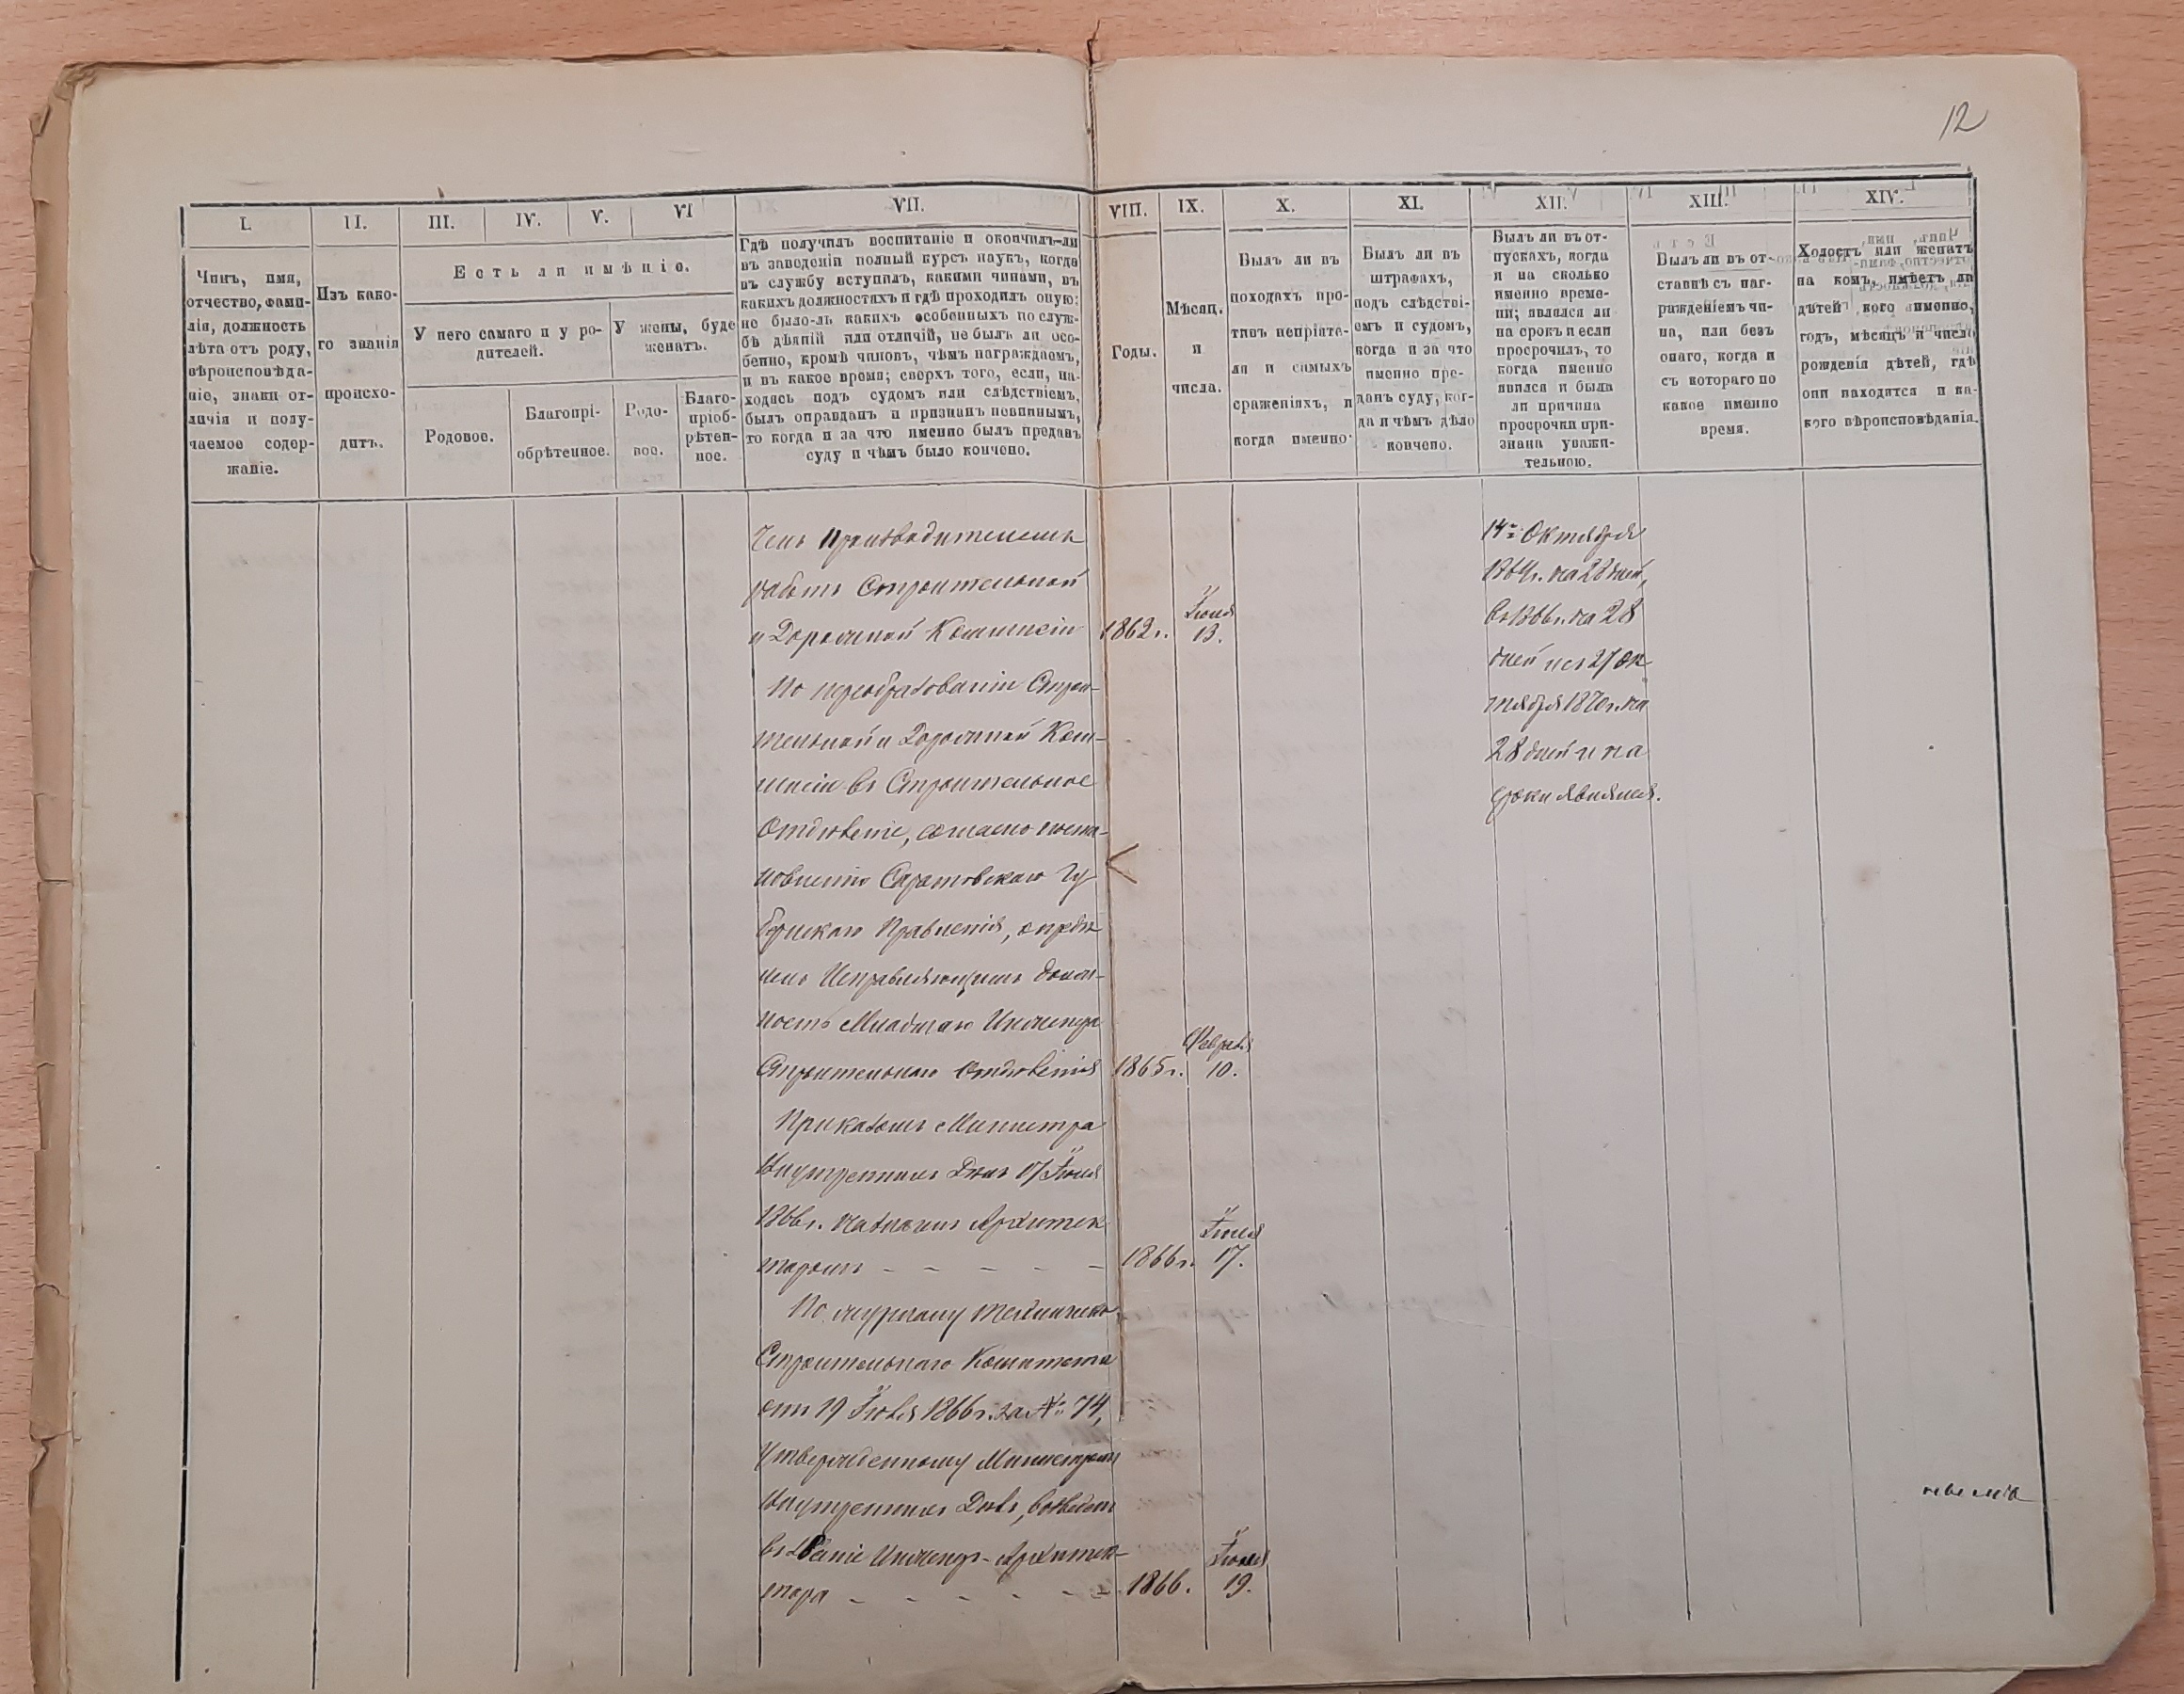 12
I.
II.
III.
IV.
V.
VI
VII.
VIII.
IX.
X.
XI.
XII.
XIII.
XIV.
Чинъ, имя,
отчество, фами-
лія, должность
лѣта отъ роду,
вѣроисповѣда-
ніе, знаки от-
личія и полу-
чаемое содер-
жаніе.
Изъ како-
го званія
происхо-
дитъ.
Есть ли имѣніе.
У него самаго и у ро-
дителей.
У жены, буде
женатъ.
Родовое.
Благопрі-
обрѣтенное.
Родо-
вое.
Благо-
пріоб-
рѣтен-
ное.
Гдѣ получилъ воспитаніе и окончилъ-ли
въ заведеніи полный курсъ наукъ, когда
въ службу вступилъ, какими чинами, въ
какихъ должностяхъ и гдѣ проходилъ оную;
не было-ль какихъ особенныхъ по служ-
бѣ дѣяній или отличій, не былъ ли осо-
бенно, кромѣ чиновъ, чѣмъ награждаемъ,
и въ какое время; сверхъ того, если, на-
ходясь подъ судомъ или слѣдствіемъ,
былъ оправданъ и признанъ невиннымъ,
то когда и за что именно былъ преданъ
суду и чѣмъ было кончено.
Годы.
Мѣсяц.
и
числа.
Былъ ли въ
походахъ про-
тивъ непріяте-
ля и самыхъ
сраженіяхъ, и
когда именно.
Былъ ли въ
штрафахъ,
подъ слѣдстві-
емъ и судомъ,
когда и за что
именно пре-
данъ суду, ког-
да и чѣмъ дѣло
кончено.
Былъ ли въ от-
пускахъ, когда
и на сколько
именно време-
ни; являлся ли
на срокъ и если
просрочилъ, то
когда именно
явился и была
ли причина
просрочки при-
знана уважи-
тельною.
Былъ ли въ от-
ставкѣ съ наг-
ражденіемъ чи-
на, или безъ
онаго, когда и
съ котораго по
какое именно
время.
Холостъ или женатъ
на комъ, имѣетъ ли
дѣтей кого именно,
годъ, мѣсяцъ и число
рожденія дѣтей, гдѣ
они находятся и ка-
кого вѣроисповѣданія.
ленъ Производителемъ
работъ Строительной
и Дорожной Комиссіи 1862 г. Іюня 13.
По преобразованіи Строи-
тельной и Дорожной Ком-
мисіи въ Строительное
Отдѣленіе, согласно поста-
новленію Саратовскаго Гу
бернскаго Правленія, опредѣ
ленъ Исправляющимъ долж-
ность Младшаго Инженера
Строительнаго Отдѣленія 1865 г. Февраля 10.
Приказомъ Министра
Внутреннихъ Дѣлъ 17 Іюня
1866 г. назначенъ Архитек
торомъ - - - - - 1866 г. Іюня 17.
По журналу Технически
Строительнаго Комитета
отъ 19 Іюля 1866 г. за № 74,
Утвержденному Министромъ
Внутреннихъ Дѣлъ, возведенъ
въ званіе Инженеръ-Архитек-
тора - - - - - - 1866. Іюля 19.
14го Октября
1864 г. на 28 дней,
въ 1866 г. на 28
дней и съ 27 Ок
тября 1870 г. на
28 дней и на
сроки являлся.